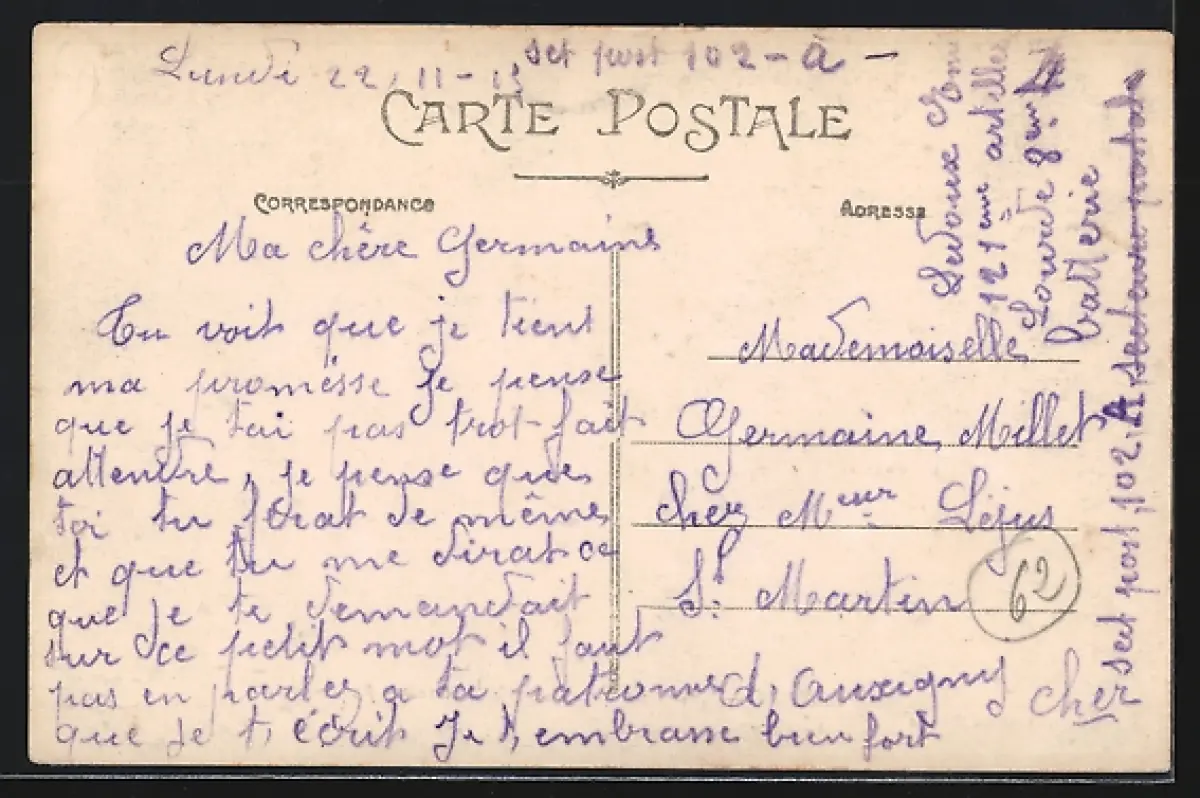 Lundi 22-11-15 sect post 102-A-
CARTE POSTALE
CORRESPONDANCE
Ma chère Germaine
Tu voit que je tient
ma promèsse je pense
que je tai pas trot fait
attendre, je pense que
toi tu ferat de même
et que tu me dirat ce
que je te demandait
sur ce petit mot il faut
pas en parler a ta patronne
que je t, écrit Je t, embrasse bien fort
ADRESSE
Mademoiselle
Germaine Millet
chez Meur Léjus
St. Martin
d, Auxigny
Cher
62
Ledoux
121ème artillerie
Lourde 8em
batterie
secteur postal
sect post, 102.A